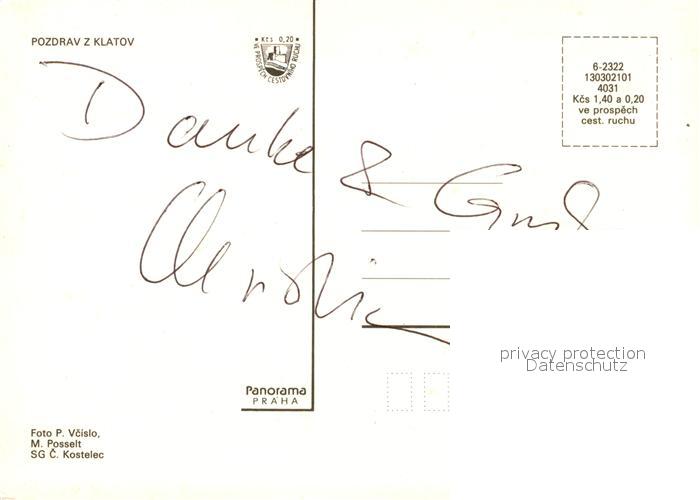 POZDRAV Z KLATOV
Kčs 0,20
VE PROSPĚCH CESTOVNÍHO RUCHU
6-2322
130302101
4031
Kčs 1,40 a 0,20
ve prospěch
cest. ruchu
Danke & Gruß
privacy protection
Datenschutz
Panorama
PRAHA
Foto P. Včíslo,
M. Posselt
SG Č. Kostelec